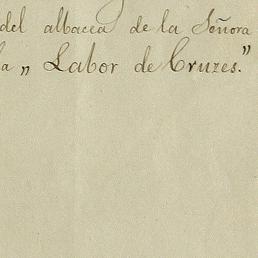 del albacea de la Señora
la „ Labor de Cruzes.”